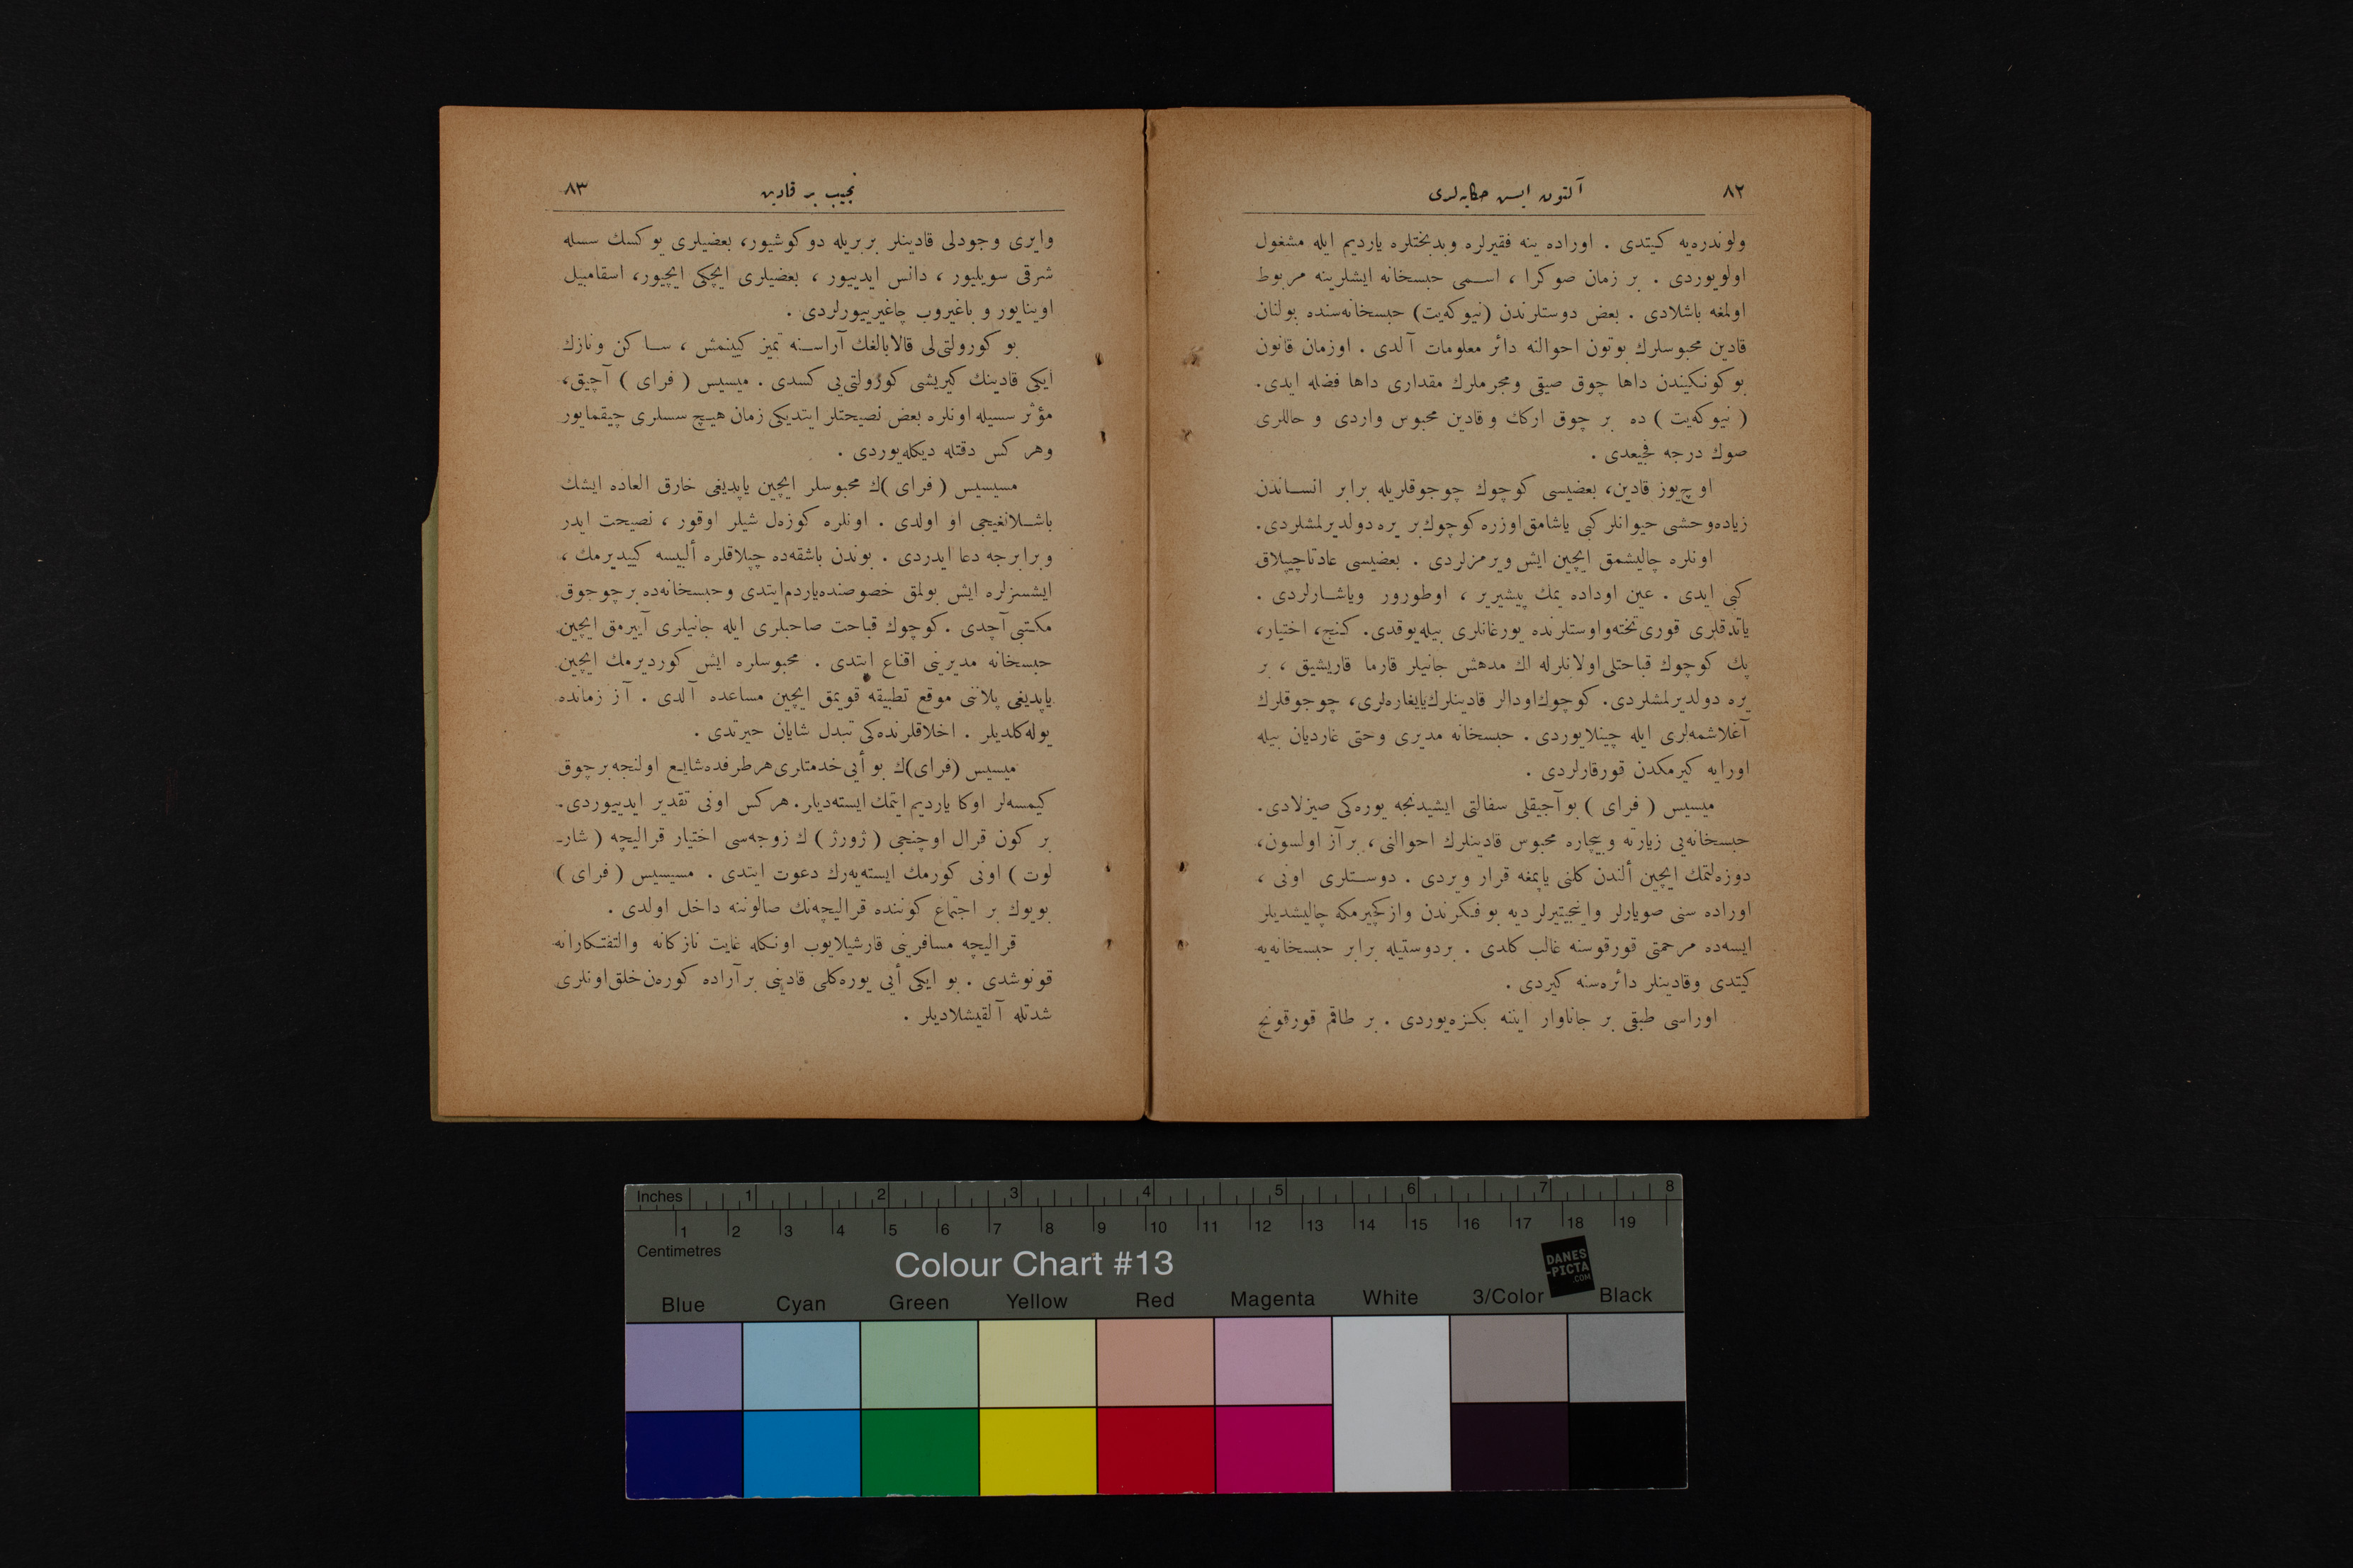 ٨٢
آلتون ایس حکایه‌لری
ولوندره‌یه كیتدی . اوراده ینه فقیرلره وبدبختلره یاردیم ایله مشغول
اولویوردی . بر زمان صوكرا ، اسمی حبسخانه ایشلرینه مربوط
اولمغه باشلادی . بعض دوستلرندن (نیوكه‌یت) حبسخانه‌سنده بولنان
قادین محبوسلرك بوتون احوالنه دائر معلومات آلدی . اوزمان قانون
بوكونكیندن داها چوق صیقی ومجرملرك مقداری داها فضله ایدی.
( نیوكه‌یت ) ده بر چوق اركك وقادین محبوس واردی و حاللری
صوك درجه فجیعدی .
اوچیوز قادین، بعضیسی كوچوك چوجوقلریله برابر انساندن
زیاده وحشی حیوانلر كبی یاشامق اوزره كوچوك بر یره دولدیرلمشلردی.
اونلره چالیشمق ایچین ایش ویرمزلردی . بعضیسی عادتا چیپلاق
كبی ایدی . عین اوداده یمك پیشیریر ، اوطورور ویاشارلردی .
یاتدقلری قوری تخته واوستلرنده یورغانلری بیله یوقدی. كنج، اختیار،
پك كوچوك قباحتلی اولانلرله اك مدهش جانیلر قارما قاریشیق ، بر
یره دولدیرلمشلردی. كوچوك اودالر قادینلرك یایغاره‌لری، چوجوقلرك
آغلاشمه‌لری ایله چینلایوردی . حبسخانه مدیری وحتی غاردیان بیله
اورایه كیرمكدن قورقارلردی .
میسیس ( فرای ) بو آجیقلی سفالتی ایشیدنجه یوره‌كی صیزلادی.
حبسخانه‌یی زیارته وبیچاره محبوس قادینلرك احوالنی، بر آز اولسون،
دوزه‌لتمك ایچین ألندن كلنی یاپمغه قرار ویردی . دوستلری اونی ،
اوراده سنی صویارلر واینجیتیرلر دیه بو فكرندن وازكچیرمكه چالیشدیلر
ایسه‌ده مرحمتی قورقوسنه غالب كلدی . بر دوستیله برابر حبسخانه‌یه
كیتدی وقادینلر دائره‌سنه كیردی .
اوراسی طبقی بر جاناوار ایننه بكزه‌یوردی . بر طاقم قورقونج
نجیب بر قادین
٨٣
وایری وجودلی قادینلر بربریله دوكوشیور، بعضیلری یوكسك سسله
شرقی سویلیور ، دانس ایدییور ، بعضیلری ایچكی ایچیور، اسقامبیل
اوینایور و باغیروب چاغیرییورلردی .
بو كورولتی‌لی قالابالغك آراسنه تمیز كیینمش ، ساكن ونازك
ایكی قادینك كیریشی كورولتی‌یی كسدی . میسیس ( فرای ) آچیق،
مؤثر سسیله اونلره بعض نصیحتلر ایتدیكی زمان هیچ سسلری چیقمایور
وهر كس دقتله دیكله‌یوردی .
مسیسیس ( فرای )ك محبوسلر ایچین یاپدیغی خارق العاده ایشك
باشلانغیجی او اولدی . اونلره كوزه‌ل شیلر اوقور ، نصیحت ایدر
وبرابرجه دعا ایدردی . بوندن باشقه‌ده چپلاقلره ألبیسه كییدیرمك ،
ایشسزلره ایش بولمق خصوصنده یاردم ایتدی وحبسخانه‌ده بر چوجوق
مكتبی آچدی . كوچوك قباحت صاحبلری ایله جانیلری آییرمق ایچین
حبسخانه مدیرینی اقناع ایتدی . محبوسلره ایش كوردیرمك ایچین
یاپدیغی پلاننی موقع تطبیقه قویمق ایچین مساعده آلدی . آز زمانده
یوله كلدیلر . اخلاقلرنده‌كی تبدل شایان حیرتدی .
میسیس (فرای)ك بو أیی خدمتلری هر طرفده شایع اولنجه بر چوق
كیمسه‌لر اوكا یاردیم ایتمك ایسته‌دیلر. هركس اونی تقدیر ایدییوردی.
بر كون قرال اوچنجی ( ژورژ ) ك زوجه‌سی اختیار قرالیچه ( شار-
لوت ) اونی كورمك ایسته‌یه‌رك دعوت ایتدی . مسیسیس ( فرای )
بویوك بر اجتماع كوننده قرالیچه‌نك صالوننه داخل اولدی .
قرالیچه مسافرینی قارشیلایوب اونكله غایت نازكانه والتفتكارانه
قونوشدی . بو ایكی أیی یوره‌كلی قادینی بر آراده كوره‌ن خلق اونلری
شدتله آلقیشلادیلر .
Inches 1 2 3 4 5 6 7 8
1 2 3 4 5 6 7 8 9 10 11 12 13 14 15 16 17 18 19
Centimetres
Colour Chart #13
DANES
-PICTA
.COM
Blue Cyan Green Yellow Red Magenta White 3/Color Black